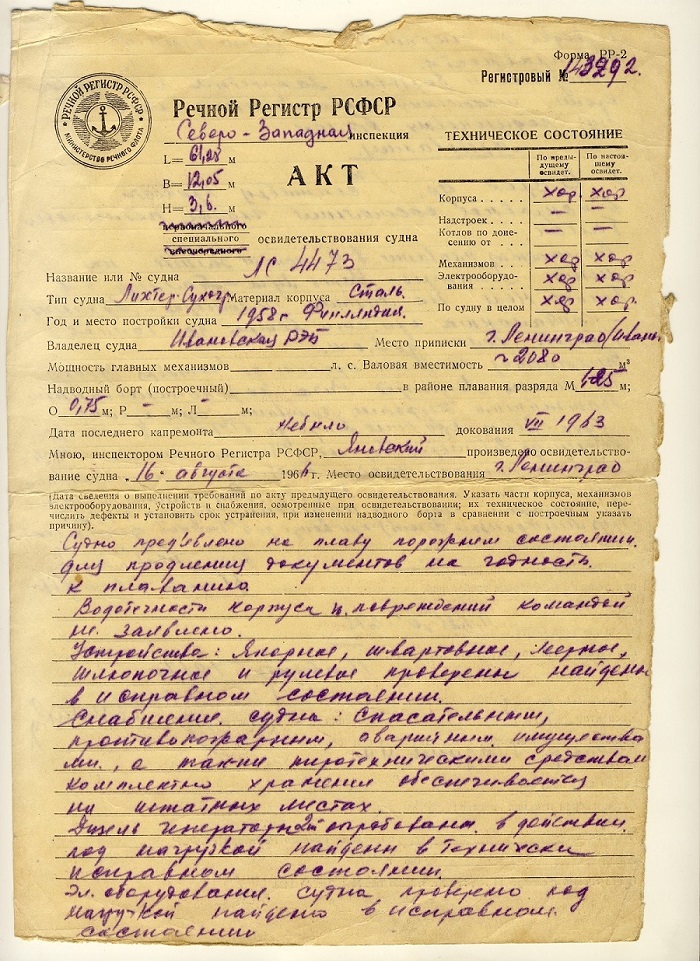 Форма РР-2
Регистровый № 143292.
РЕЧНОЙ РЕГИСТР РСФСР
МИНИСТЕРСТВО РЕЧНОГО ФЛОТА
Речной Регистр РСФСР
Северо-Западная инспекция
L= 61,28 м
B= 12,05 м
H= 3,6. м
АКТ
первоначального
специального освидетельствования судна
ТЕХНИЧЕСКОЕ СОСТОЯНИЕ
По преды-дущому освидет. По настоя-шему освидет.
Корпуса . . . . . хор. хор
Надстроек . . . . — —
Котлов по доне-сению от . . . — —
Механизмов . . . хор хор
Электрооборудо-вания . . . . . хор хор
По судну в целом хор хор
Название или № судна ЛС 4473
Тип судна Лихтер-Сухогр Материал корпуса Сталь.
Год и место постройки судна 1958г Финляндия.
Владелец судна Ивановская РЭБ Место приписки г. Ленинград/
Мощность главных механизмов л. с. Валовая вместимость 2080 м³
Надводный борт (построечный) в районе плавания разряда М 1,25 м;
О 0,75 м; Р — м; Л — м;
Дата последнего капремонта не было докования VII 1963
Мною, инспектором Речного Регистра РСФСР, Яневский произведено освидетельство-
вание судна 16 августа 1966 г. Место освидетельствования г. Ленинград
(Дата сведения о выполнении требований по акту предыдущего освидетельствования. Указать части корпуса, механизмов
электрооборудования, устройств и снабжения, осмотренные при освидетельствовании; их техническое состояние, пере-
числить дефекты и установить срок устранения, при изменении надводного борта в сравнении с построечным указать
причину).
Судно пред'явлено на плаву порожнем состоянии.
для продления документов на годность.
к плаванию.
Водотечности корпуса и повреждений командой
не заявлено.
Устройства: Якорное, швартовное, леерное,
шлюпочное и рулевое проверены найдены
в исправном состоянии.
Снабжение судна: Спасательным,
противопожарным, аварийным имущества
ми, а также пиротехническими средствам
комплектно хранения обеспечивается
на штатных местах.
Дизель генераторы 2шт опробованы в действии.
под нагрузкой найдены в технически
исправном состоянии.
Эл. оборудования. судна проверено под
нагрузкой найдено в исправном.
состоянии